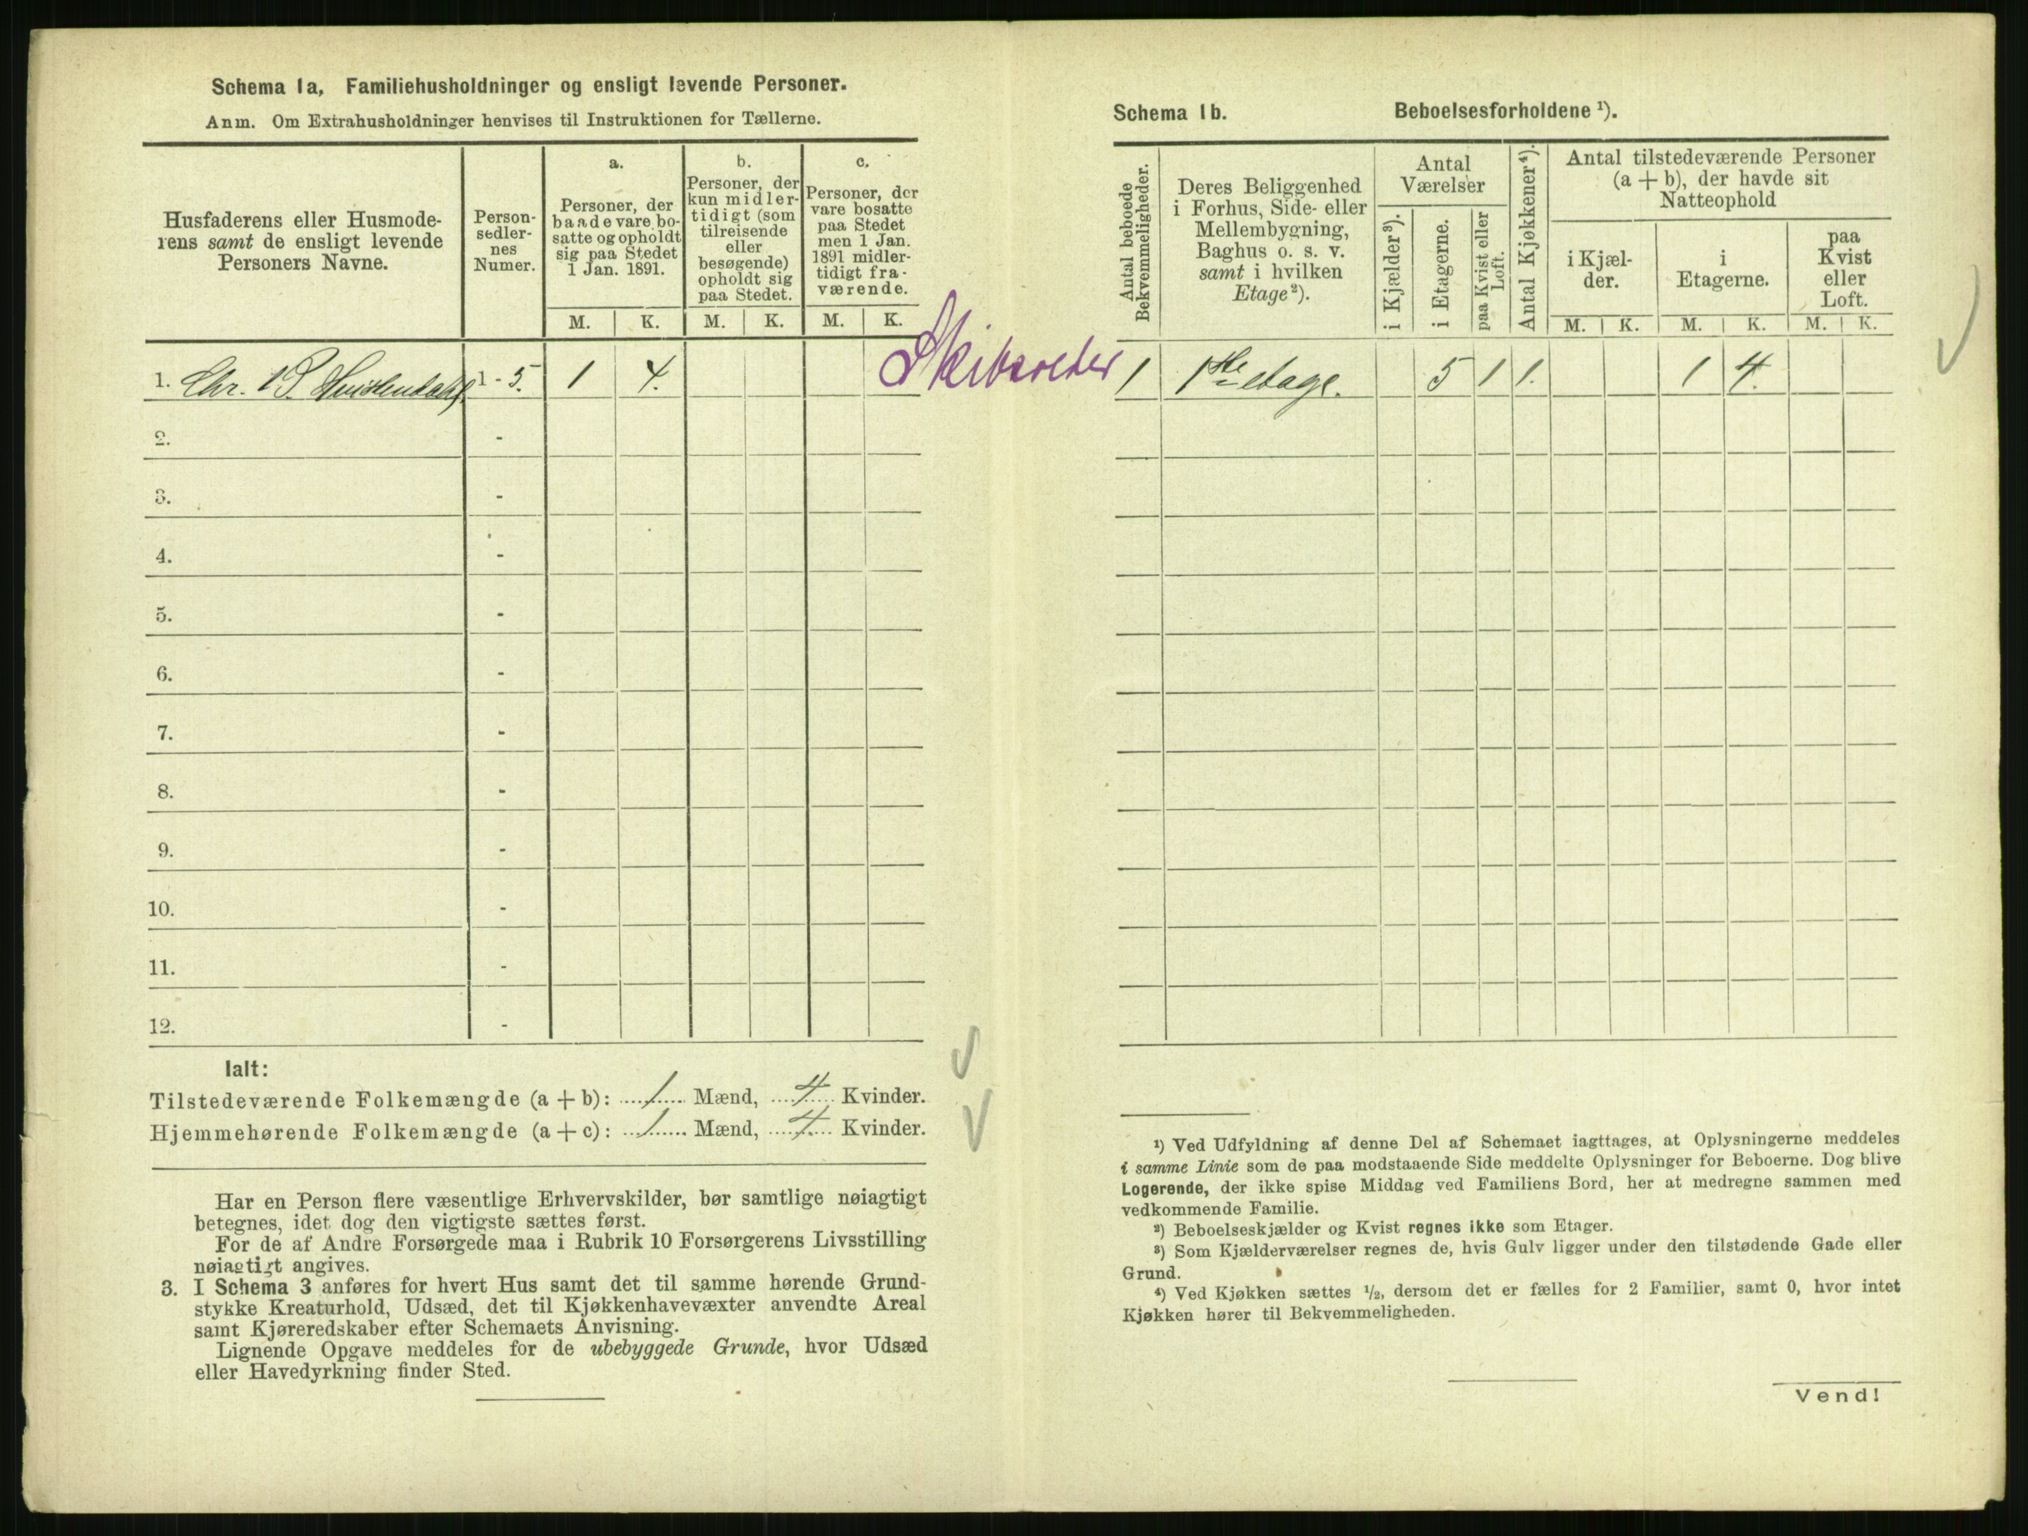 Schema 1a, Familiehusholdninger og ensligt levende Personer.
Anm. Om Extrahusholdninger henvises til Instruktionen for Tællerne.
Husfaderens eller Husmode-
rens samt de ensligt levende
Personers Navne.
Person-
sedler-
nes
Numer.
a.
Personer, der
baade vare bo-
satte og opholdt
sig paa Stedet
1 Jan. 1891.
b.
Personer, der
kun midler-
tidigt (som
tilreisende
eller
besøgende)
opholdt sig
paa Stedet.
c.
Personer, der
vare bosatte
paa Stedet
men 1 Jan.
1891 midler-
tidigt fra-
værende.
M. K. M. K. M. K.
1. Chr. P. 1 - 5. 1 4.
2. -
3. -
4. -
5. -
6. -
7. -
8. -
9. -
10. -
11. -
12. -
Ialt:
Tilstedeværende Folkemængde (a + b): 1 Mænd, 4 Kvinder.
Hjemmehørende Folkemængde (a + c): 1 Mænd, 4 Kvinder.
Har en Person flere væsentlige Erhvervskilder, bør samtlige nøiagtigt
betegnes, idet dog den vigtigste sættes først.
For de af Andre Forsørgede maa i Rubrik 10 Forsørgerens Livsstilling
nøiagtigt angives.
3. I Schema 3 anføres for hvert Hus samt det til samme hørende Grund-
stykke Kreaturhold, Udsæd, det til Kjøkkenhavevæxter anvendte Areal
samt Kjøreredskaber efter Schemaets Anvisning.
Lignende Opgave meddeles for de ubebyggede Grunde, hvor Udsæd
eller Havedyrkning finder Sted.
Schema 1b. Beboelsesforholdene ¹).
Antal beboede
Bekvemmeligheder.
Deres Beliggenhed
i Forhus, Side- eller
Mellembygning,
Baghus o. s. v.
samt i hvilken
Etage²).
Antal
Værelser
i Kjælder³).
i Etagerne.
paa Kvist eller
Loft.
Antal Kjøkkener⁴).
Antal tilstedeværende Personer
(a + b), der havde sit
Natteophold
i Kjæl-
der.
i
Etagerne.
paa
Kvist
eller
Loft.
M. K. M. K. M. K.
1 1ste etage. 5 1 1. 1 4.
¹) Ved Udfyldning af denne Del af Schemaet iagttages, at Oplysningerne meddeles
i samme Linie som de paa modstaaende Side meddelte Oplysninger for Beboerne. Dog blive
Logerende, der ikke spise Middag ved Familiens Bord, her at medregne sammen med
vedkommende Familie.
²) Beboelseskjælder og Kvist regnes ikke som Etager.
³) Som Kjælderværelser regnes de, hvis Gulv ligger under den tilstødende Gade eller
Grund.
⁴) Ved Kjøkken sættes ½, dersom det er fælles for 2 Familier, samt 0, hvor intet
Kjøkken hører til Bekvemmeligheden.
Vend!